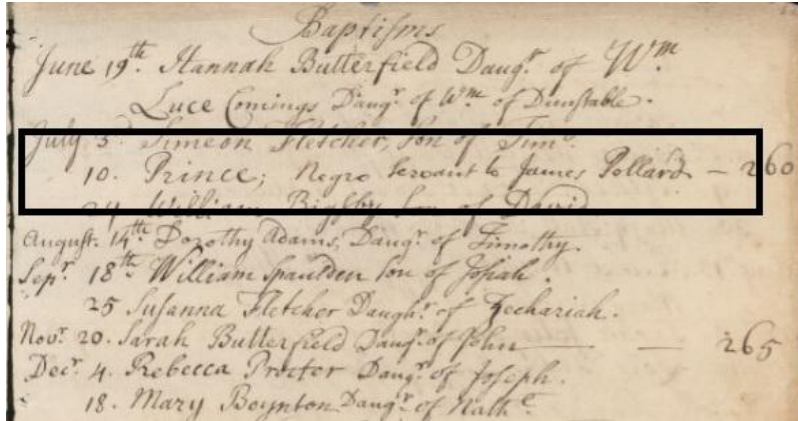 Baptisms
June 19th. Hannah Butterfield Daugr. of Wm.
Luce Comings Daugr. of Wm. of Dunstable.
July 3d. Simeon Fletcher, Son of Timo.
10. Prince; Negro Servant to James Pollard — 260
24. William Bigsby Son of David
August. 14th. Dorothy Adams, Daugr. of Timothy.
Sepr. 18th. William Spaulden Son of Josiah.
25 Susanna Fletcher Daughr. of Zechariah.
Novr. 20. Sarah Butterfield Daugr. of John — — 265
Decr. 4. Rebecca Procter Daugr. of Joseph.
18. Mary Boynton Daugr. of Nathl.